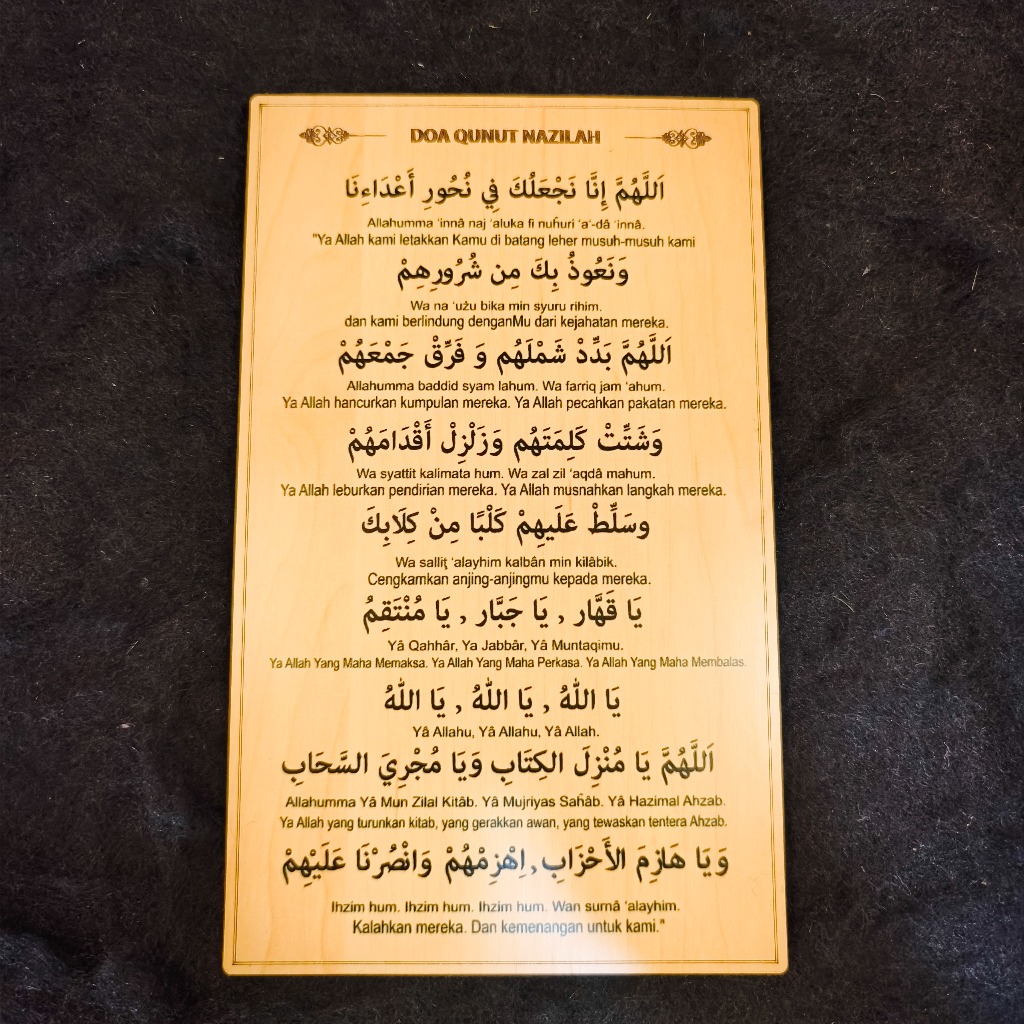 DOA QUNUT NAZILAH
اَللَّهُمَّ إِنَّا نَجْعَلُكَ فِي نُحُورِ أَعْدَاءِنَا
Allahumma 'innâ naj 'aluka fi nuḣuri 'a'-dâ 'innâ.
"Ya Allah kami letakkan Kamu di batang leher musuh-musuh kami
وَنَعُوذُ بِكَ مِن شُرُورِهِمْ
Wa na 'użu bika min syuru rihim.
dan kami berlindung denganMu dari kejahatan mereka.
اَللَّهُمَّ بَدِّدْ شَمْلَهُم وَ فَرِّقْ جَمْعَهُمْ
Allahumma baddid syam lahum. Wa farriq jam 'ahum.
Ya Allah hancurkan kumpulan mereka. Ya Allah pecahkan pakatan mereka.
وَشَتِّتْ كَلِمَتَهُم وَزَلْزِلْ أَقْدَامَهُمْ
Wa syattit kalimata hum. Wa zal zil 'aqdâ mahum.
Ya Allah leburkan pendirian mereka. Ya Allah musnahkan langkah mereka.
وسَلِّطْ عَلَيهِمْ كَلْبًا مِنْ كِلَابِكَ
Wa salliṭ 'alayhim kalbân min kilâbik.
Cengkamkan anjing-anjingmu kepada mereka.
يَا قَهَّار , يَا جَبَّار , يَا مُنْتَقِمُ
Yâ Qahhâr, Ya Jabbâr, Yâ Muntaqimu.
Ya Allah Yang Maha Memaksa. Ya Allah Yang Maha Perkasa. Ya Allah Yang Maha Membalas.
يَا اللهُ , يَا اللهُ , يَا اللهُ
Yâ Allahu, Yâ Allahu, Yâ Allah.
اَللَّهُمَّ يَا مُنْزِلَ الكِتَابِ وَيَا مُجْرِيَ السَّحَابِ
Allahumma Yâ Mun Zilal Kitâb. Yâ Mujriyas Saḣâb. Yâ Hazimal Ahzab.
Ya Allah yang turunkan kitab, yang gerakkan awan, yang tewaskan tentera Ahzab.
وَيَا هَازِمَ الأَحْزَابِ,اِهْزِمْهُمْ وَانْصُرْنَا عَلَيْهِمْ
Ihzim hum. Ihzim hum. Ihzim hum. Wan surnâ 'alayhim.
Kalahkan mereka. Dan kemenangan untuk kami."